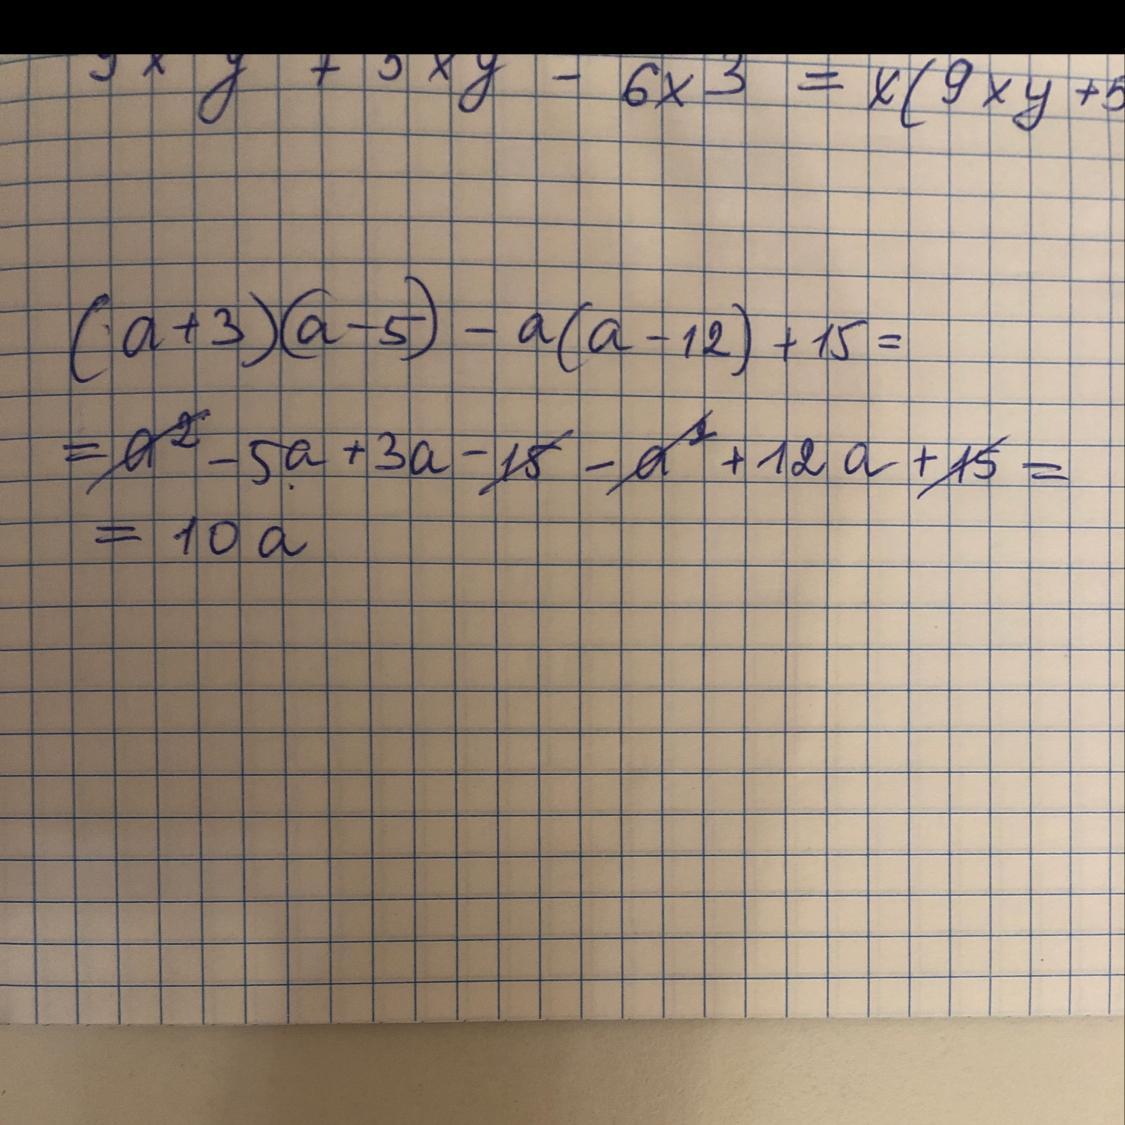 + 5xy - 6x3 = x(9xy+5
(a+3)(a-5) - a(a-12) +15=
= a² -5a +3a -15 - a² +12a +15 =
= 10a